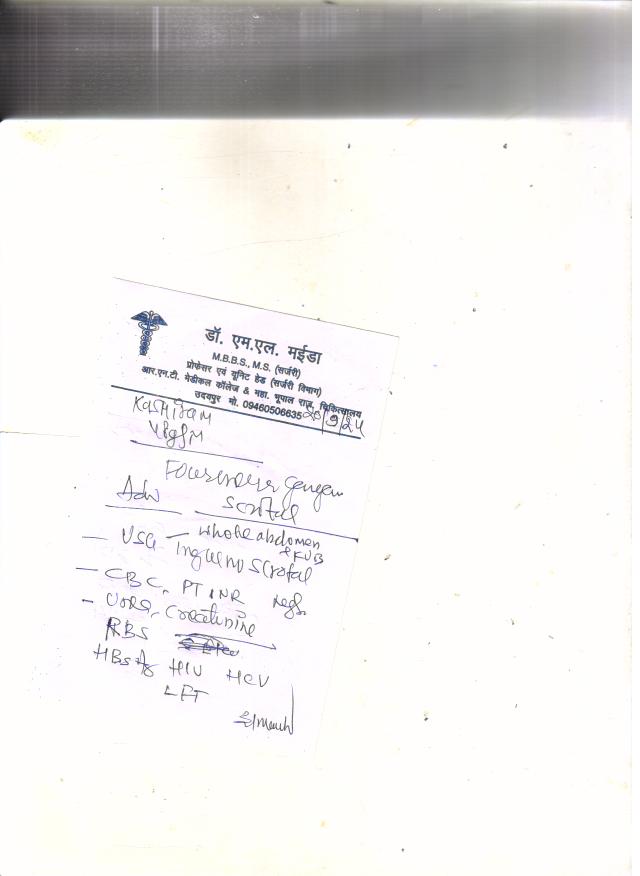 डॉ. एम.एल. मईडा
M.B.B.S., M.S. (सर्जरी)
प्रोफेसर एवं यूनिट हेड (सर्जरी विभाग)
आर.एन.टी. मेडीकल कॉलेज & महा. भूपाल राज. चिकित्सालय
उदयपुर मो. 09460506635
20/9/24
Kashiram
Gangen
Adv
Scrotal
- USG - whole abdomen
& KUB
Inguino Scrotal
- CBC, PT INR
- Urea, Creatinine
RBS
HBsAg HIV HCV
LFT